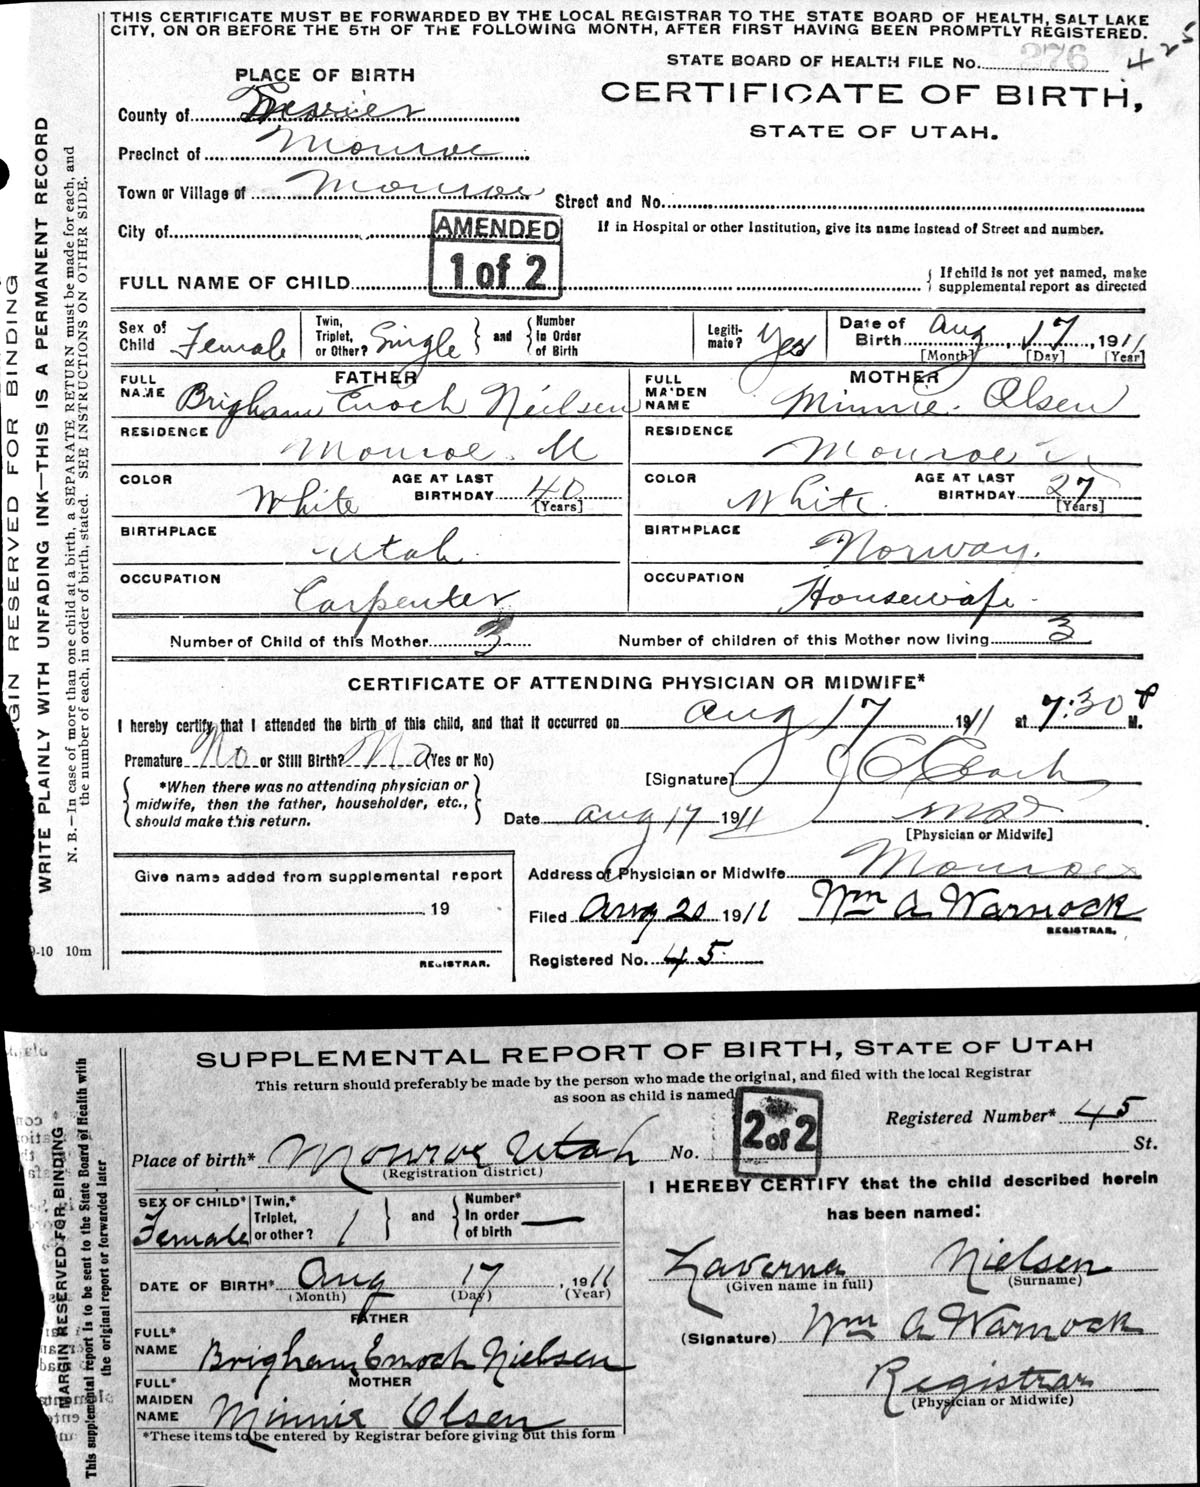 THIS CERTIFICATE MUST BE FORWARDED BY THE LOCAL REGISTRAR TO THE STATE BOARD OF HEALTH, SALT LAKE
CITY, ON OR BEFORE THE 5TH OF THE FOLLOWING MONTH, AFTER FIRST HAVING BEEN PROMPTLY REGISTERED.
STATE BOARD OF HEALTH FILE No. 276 425
PLACE OF BIRTH
CERTIFICATE OF BIRTH,
STATE OF UTAH.
County of Sevier
Precinct of Monroe
Town or Village of Monroe
Street and No.
City of
If in Hospital or other Institution, give its name instead of Street and number.
AMENDED
1 of 2
FULL NAME OF CHILD
If child is not yet named, make
supplemental report as directed
Sex of Child Female
Twin, Triplet, or Other? Single and Number in Order of Birth
Legitimate? Yes
Date of Birth Aug 17, 1911
[Month] [Day] [Year]
FATHER
FULL NAME Brigham Enoch Neilsen
RESIDENCE Monroe. U
COLOR White AGE AT LAST BIRTHDAY 40 [Years]
BIRTHPLACE Utah.
OCCUPATION Carpenter
MOTHER
FULL MAIDEN NAME Minnie. Olsen
RESIDENCE Monroe
COLOR White. AGE AT LAST BIRTHDAY 27 [Years]
BIRTHPLACE Norway.
OCCUPATION Housewife.
Number of Child of this Mother 3
Number of children of this Mother now living 3
CERTIFICATE OF ATTENDING PHYSICIAN OR MIDWIFE*
I hereby certify that I attended the birth of this child, and that it occurred on Aug 17 1911 at 7:30 P M.
Premature No or Still Birth? No (Yes or No)
*When there was no attending physician or
midwife, then the father, householder, etc.,
should make this return.
[Signature]
Date Aug 17 1911
[Physician or Midwife]
Address of Physician or Midwife Monroe
Filed Aug 20 1911 Wm A Warnock
REGISTRAR.
Registered No. 45
Give name added from supplemental report
19
REGISTRAR.
10m
WRITE PLAINLY WITH UNFADING INK—THIS IS A PERMANENT RECORD
N. B.—In case of more than one child at a birth, a SEPARATE RETURN must be made for each, and
the number of each, in order of birth, stated. SEE INSTRUCTIONS ON OTHER SIDE.
RESERVED FOR BINDING
SUPPLEMENTAL REPORT OF BIRTH, STATE OF UTAH
This return should preferably be made by the person who made the original, and filed with the local Registrar
as soon as child is named
2 of 2
Registered Number* 45
Place of birth* Monroe Utah No. St.
(Registration district)
SEX OF CHILD* Female
Twin,* Triplet, or other? 1 and Number* In order of birth —
DATE OF BIRTH* Aug 17, 1911
(Month) (Day) (Year)
FATHER
FULL* NAME Brigham Enoch Nielsen
MOTHER
FULL* MAIDEN NAME Minnie Olsen
*These items to be entered by Registrar before giving out this form
I HEREBY CERTIFY that the child described herein
has been named:
Laverna Nielsen
(Given name in full) (Surname)
(Signature) Wm A Warnock
Registrar
(Physician or Midwife)
MARGIN RESERVED FOR BINDING
This supplemental report is to be sent to the State Board of Health with
the original report or forwarded later